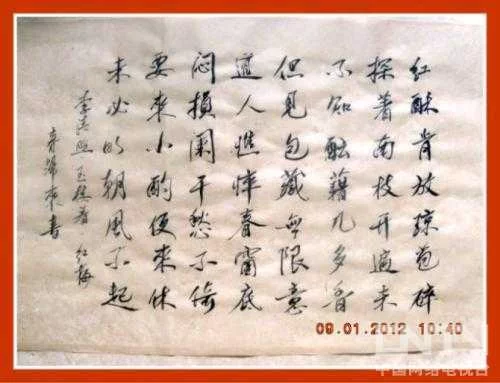 红酥肯放琼苞碎
探着南枝开遍未
不知酝藉几多香
但见包藏無限意
道人憔悴春窗底
闷损阑干愁不倚
要來小酌便來休
未必明朝風不起
李清照 玉楼春 红梅
來書
09.01.2012 10:40
CNTV
中国网络电视台